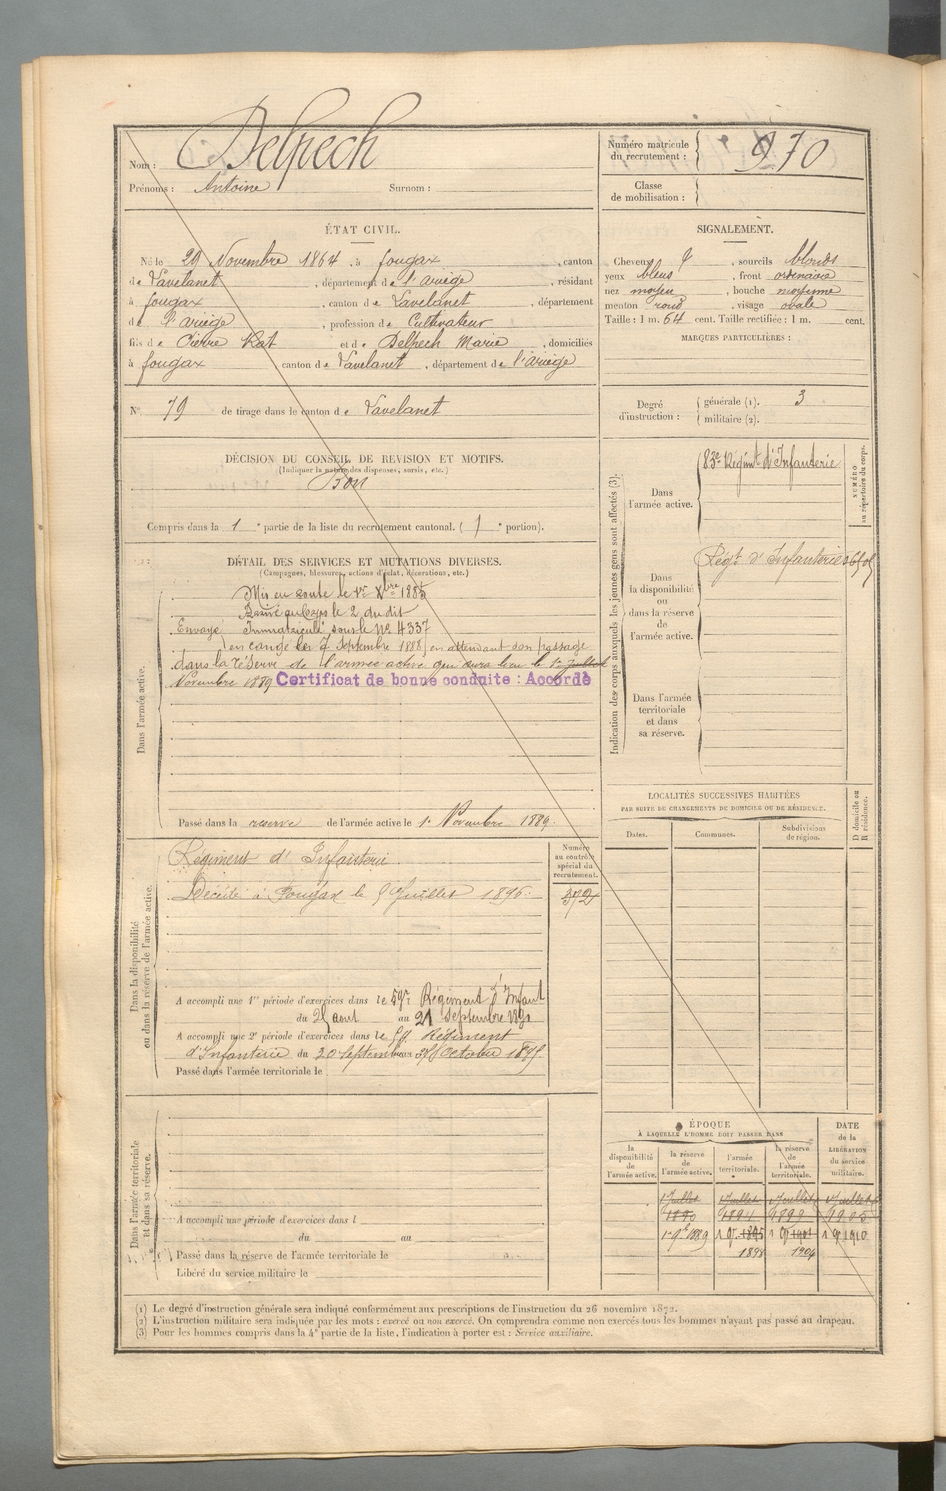 Nom : Delpech
Prénoms : Antoine Surnom :
Numéro matricule
du recrutement : 970
Classe
de mobilisation :
ÉTAT CIVIL.
Né le 29 Novembre 1864, à fougax, canton
de Vavelanet, département de l'ariège, résidant
à fougax, canton de Lavelanet, département
de l'ariège, profession de Cultivateur
fils de Pierre Rat et de Delpech Marie, domiciliés
à fougax canton de Vavelanet, département de l'ariège
N° 79 de tirage dans le canton de Vavelanet
SIGNALEMENT.
Cheveux , sourcils blonds
yeux bleus, front ordinaire
nez moyen, bouche moyenne
menton rond, visage ovale
Taille : 1 m. 64 cent. Taille rectifiée : 1 m. cent.
MARQUES PARTICULIÈRES :
Degré
d'instruction :
générale (1). 3
militaire (2).
DÉCISION DU CONSEIL DE REVISION ET MOTIFS.
(Indiquer la nature des dispenses, sursis, etc.)
Bon
Compris dans la 1e partie de la liste du recrutement cantonal. (1e portion).
DÉTAIL DES SERVICES ET MUTATIONS DIVERSES.
(Campagnes, blessures, actions d'éclat, décorations, etc.)
Dans l'armée active.
Mis en route le 1er Xbre 1885
Arrivé au Corps le 2 du dit
Envoyé Immatriculé sous le No 4337
en congé le 7 Septembre 1888, en attendant son passage
dans la réserve de l'armée active qui aura lieu le 1er Juillet
Novembre 1889 Certificat de bonne conduite : Accordé
Passé dans la réserve de l'armée active le 1er Novembre 1889
Indication des corps auxquels les jeunes gens sont affectés (3).
NUMÉRO
au répertoire du corps.
Dans
l'armée active.
83e Régimt d'Infanterie
Dans
la disponibilité
ou
dans la réserve
de
l'armée active.
Régt d'Infanterie
Dans l'armée
territoriale
et dans
sa réserve.
LOCALITÉS SUCCESSIVES HABITÉES
PAR SUITE DE CHANGEMENTS DE DOMICILE OU DE RÉSIDENCE.
Dates. Communes. Subdivisions
de région.
D domicile ou
R résidence.
Dans la disponibilité
ou dans la réserve de l'armée active.
Régiment d'Infanterie
Décédé à Fougax le 5 Juillet 1896.
Numéro
au contrôle
spécial du
recrutement.
372
A accompli une 1re période d'exercices dans le 59e Régiment d'Infant
du 25 aout au 21 Septembre 1891
A accompli une 2e période d'exercices dans le 59 Régiment
d'Infanterie du 20 Septembre au Octobre 1895
Passé dans l'armée territoriale le
Dans l'armée territoriale
et dans sa réserve.
A accompli une période d'exercices dans l
du au
Passé dans la réserve de l'armée territoriale le
Libéré du service militaire le
ÉPOQUE
À LAQUELLE L'HOMME DOIT PASSER DANS
la
disponibilité
de
l'armée active.
la réserve
de
l'armée active.
l'armée
territoriale.
la réserve
de
l'armée
territoriale.
DATE
de la
LIBÉRATION
du service
militaire.
1 Juillet 1 Juillet 1 Juillet 1 Juillet
1890 1894 1899 1905
1 9bre 1889 1 9r 1895 1 9r 1901 1 9r 1910
1898 1904
(1) Le degré d'instruction générale sera indiqué conformément aux prescriptions de l'instruction du 26 novembre 1872.
(2) L'instruction militaire sera indiquée par les mots : exercé ou non exercé. On comprendra comme non exercés tous les hommes n'ayant pas passé au drapeau.
(3) Pour les hommes compris dans la 4e partie de la liste, l'indication à porter est : Service auxiliaire.